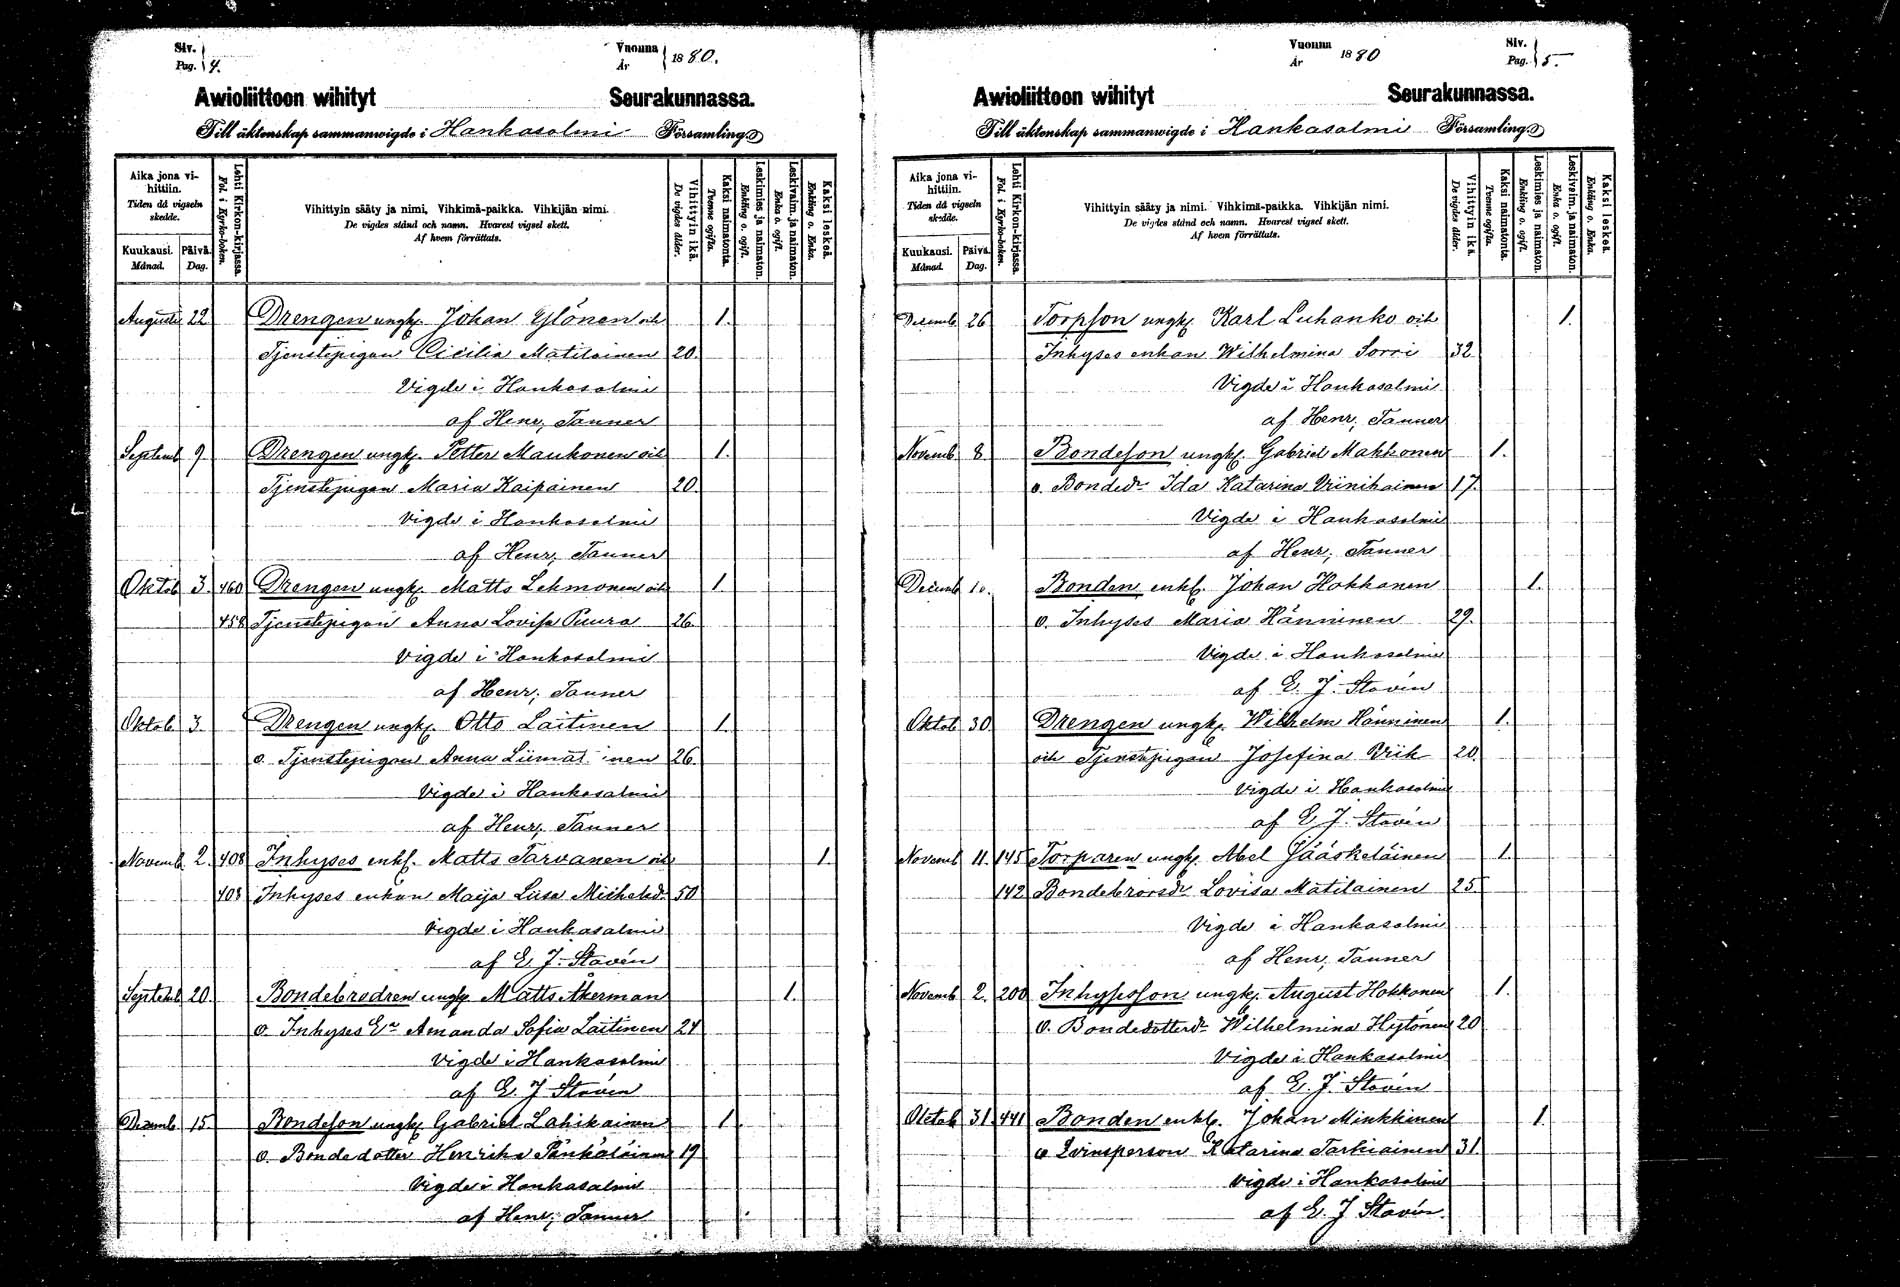 Siv.
Pag. 4.
Vuonna
År 1880.
Awioliittoon wihityt Seurakunnassa.
Till äktenskap sammanwigde i Hankasalmi Församling
Aika jona vihittiin.
Tiden då vigseln skedde.
Kuukausi. Månad.
Päivä. Dag.
Lehti Kirkon-kirjassa.
Fol. i Kyrko-boken.
Vihittyin sääty ja nimi. Vihkimä-paikka. Vihkijän nimi.
De vigdes stånd och namn. Hvarest vigsel skett.
Af hvem förrättats.
Vihittyin ikä.
De vigdes ålder.
Kaksi naimatonta.
Tvenne ogifta.
Leskimies ja naimaton.
Enkling o. ogift.
Leskivaim. ja naimaton.
Enka o. ogift.
Kaksi leskeä.
Enkling o. Enka.
Augusti 22 Drengen ungk. Johan Ylönen och 1.
Tjenstepigan Cicilia Matilainen 20.
Vigde i Hankasalmi
af Henr, Tanner
Septemb 9 Drengen ungk. Petter Maukonen och 1.
Tjenstepigan Maria Kaipainen 20.
Vigde i Hankasalmi
af Henr, Tanner
Oktob 3. 460 Drengen ungk. Matts Lehmonen och 1
458 Tjenstepigan Anna Lovisa Puura 26.
Vigde i Hankasalmi
af Henr, Tanner
Oktob 3. Drengen ungk. Otto Laitinen 1.
o. Tjenstepigan Anna Liimat inen 26.
Vigde i Hankasalmi
af Henr, Tanner
Novemb 2. 408 Inhyses enkl. Matts Tarvanen och 1.
408 Inhyses enkan Maija Liisa Michelsdr 50
Vigde i Hankasalmi
af E. J. Stavén
Septemb 20. Bondebrodren ungk. Matts Åkerman 1.
o. Inhyses Ea Amanda Sofia Laitinen 24
Vigde i Hankasalmi
af E. J Stavén
Decemb 15. Bondeson ungk. Gabriel Lahikainen 1
o. Bondedotter Henrika Pänkäläinen 19
Vigde i Hankasalmi
af Henr, Tanner
Vuonna
År 1880
Siv.
Pag. 5.
Awioliittoon wihityt Seurakunnassa.
Till äktenskap sammanwigde i Hankasalmi Församling
Aika jona vihittiin.
Tiden då vigseln skedde.
Kuukausi. Månad.
Päivä. Dag.
Lehti Kirkon-kirjassa.
Fol. i Kyrko-boken.
Vihittyin sääty ja nimi. Vihkimä-paikka. Vihkijän nimi.
De vigdes stånd och namn. Hvarest vigsel skett.
Af hvem förrättats.
Vihittyin ikä.
De vigdes ålder.
Kaksi naimatonta.
Tvenne ogifta.
Leskimies ja naimaton.
Enkling o. ogift.
Leskivaim. ja naimaton.
Enka o. ogift.
Kaksi leskeä.
Enkling o. Enka.
Decemb 26 Torpson ungk. Karl Luhanko och 1.
Inhyses enkan Wilhelmina Sorri 32
Vigde i Hankasalmi
af Henr, Tanner
Novemb 8. Bondeson ungk. Gabriel Makkonen 1.
o. Bondedr Ida Katarina Vriinikainen 17.
Vigde i Hankasalmi
af Henr, Tanner
Decemb 10. Bonden enkl. Johan Hokkanen 1.
o. Inhyses Maria Hänninen 29.
Vigde i Hankasalmi
af E. J. Stavén
Oktob 30 Drengen ungk. Wilhelm Hänninen 1.
och Tjenstepigan Josefina Vriik 20.
Vigde i Hankasalmi
af E J. Stavén
Novemb 11. 145 Torparen ungk. Abel Jääskeläinen 1.
142 Bondebrorsdr Lovisa Matilainen 25
Vigde i Hankasalmi
af Henr, Tanner
Novemb 2. 200 Inhysson ungk. August Hokkonen 1.
o. Bondedotterdr Wilhelmina Hytönen 20
Vigde i Hankasalmi
af E. J. Stavén
Oktob 31. 441 Bonden enkl. Johan Minkkinen 1
o Qvinsperson Katarina Tarkiainen 31
Vigde i Hankasalmi
af E. J Stavén.